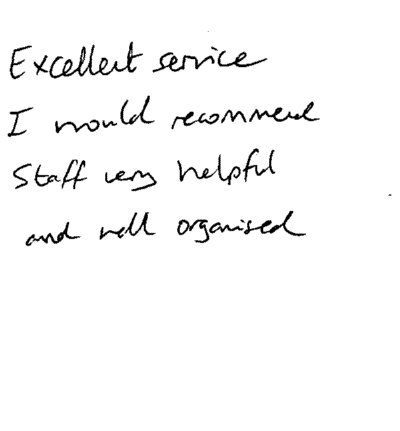 Excellent service
I would recommend
Staff very helpful
and well organised